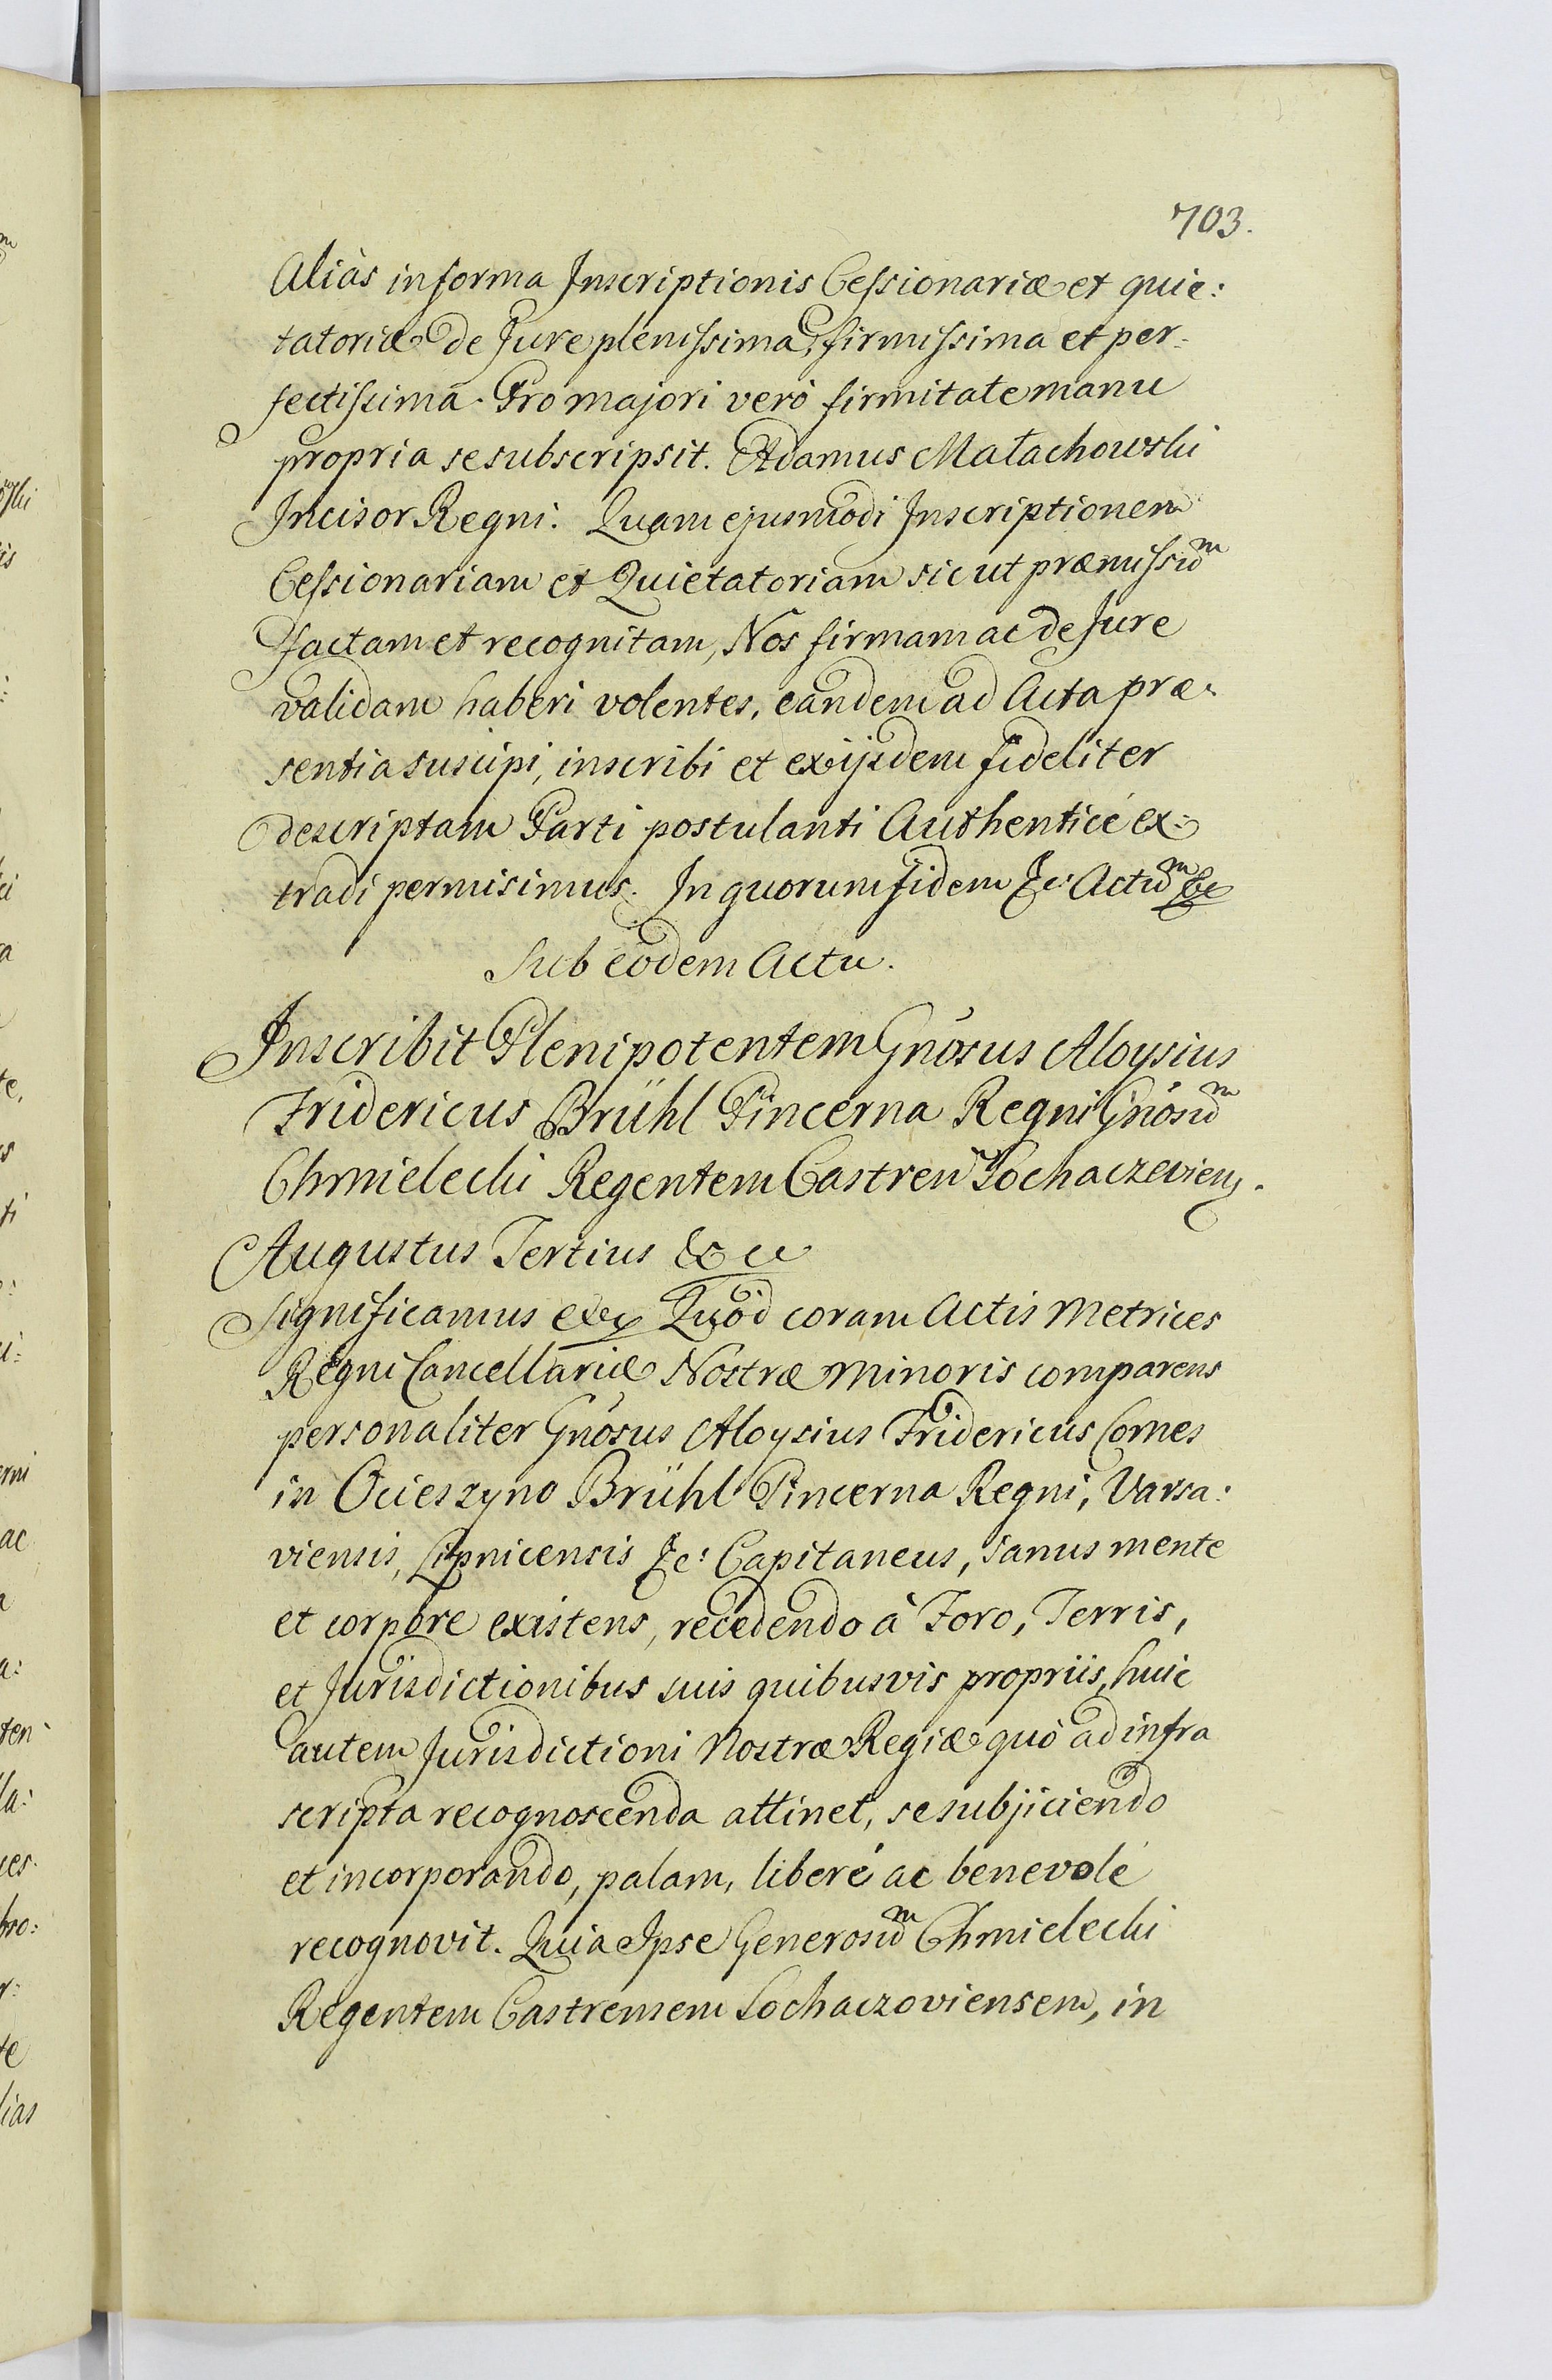 703.
Aliàs in forma Inscriptionis Cessionariæ et quie:
tatoriæ de Jure plenissima, firmissima et per:
fectissima. Pro majori verò firmitate manu
propria se subscripsit. Adamus Małachowski
Incisor Regni. Quam ejusmodi Inscriptionem
Cessionariam et Quietatoriam sicut præmissum
factam et recognitam, Nos firmam ac de Jure
validam haberi volentes, eandem ad Acta præ:
sentia suscipi, inscribi et ex ijsdem fideliter
descriptam Parti postulanti Authenticé ex:
tradi permisimus. In quorum fidem &c: Actum &c
Sub eodem Actu.
Inscribit Plenipotentem Gnosus Aloysius
Fridericus Brühl Pincerna Regni Gnosum
Chmielecki Regentem Castren Sochaczevien.
Augustus Tertius &c cc
Significamus &c Quod coram Actis Metrices
Regni Cancellariæ Nostræ Minoris comparens
personaliter Gnosus Aloysius Fridericus Comes
in Ocieszyno Brühl Pincerna Regni, Varsa:
viensis, Lipnicensis &c: Capitaneus, sanus mente
et corpore existens, recedendo à Foro, Terris,
et Jurisdictionibus suis quibusvis propriis, huic
autem Jurisdictioni Nostræ Regiæ quò ad infra
scripta recognoscenda attinet, se subjiciendo
et incorporando, palam, liberé ac benevolé
recognovit. Quia Ipse Generosum Chmielecki
Regentem Castrensem Sochaczoviensem, in